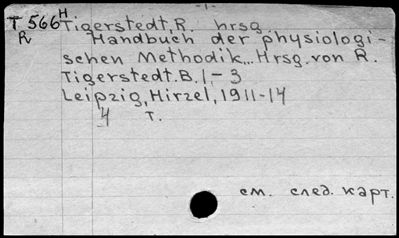 -1-
T 566 H Tigerstedt, R. hrsg.
R Handbuch der physiologi-
schen Methodik... Hrsg. von R.
Tigerstedt. B. 1-3
Leipzig, Hirzel, 1911-14
4 т.
см. след. карт.